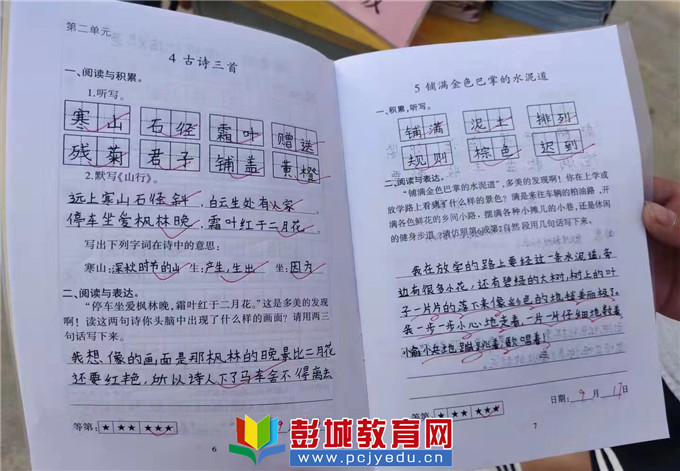 第二单元
4 古诗三首
一、阅读与积累。
1.听写。
寒山 石径 霜叶 赠送
残菊 君子 铺盖 黄橙
2.默写《山行》。
远上寒山石径斜，白云生处有人家。
停车坐爱枫林晚，霜叶红于二月花。
写出下列字词在诗中的意思：
寒山：深秋时节的山 生：产生，生出 坐：因为
二、阅读与表达。
“停车坐爱枫林晚，霜叶红于二月花。”这是多美的发现
啊！读这两句诗你头脑中出现了什么样的画面？请用两三
句话写下来。
我想像的画面是那枫林的晚景比二月花
还要红艳，所以诗人下了马车舍不得离去
等第：★ ★★ ★★★
6
5 铺满金色巴掌的水泥道
一、积累，听写。
铺满 泥土 排列
规则 棕色 迟到
二、阅读与表达。
“铺满金色巴掌的水泥道”，多美的发现啊！你在上学或
放学路上看到了什么样的景色？满是来往车辆的柏油路，开
满各色鲜花的乡间小路，摆满各种小摊儿的小巷，还是休闲
的健身步道？请仿照第6或第7自然段用几句话写下来。
我在放学的路上要经过一条水泥道，旁
边有很多小花，还有碧绿的大树，树上的叶
子一片片的落下来像彩色的地毯美丽极了。
我一步一步小心地走着，一片一片仔细地数着
等第：★ ★★ ★★★
日期：9月17日
7
彭城教育网
www.pcjyedu.cn